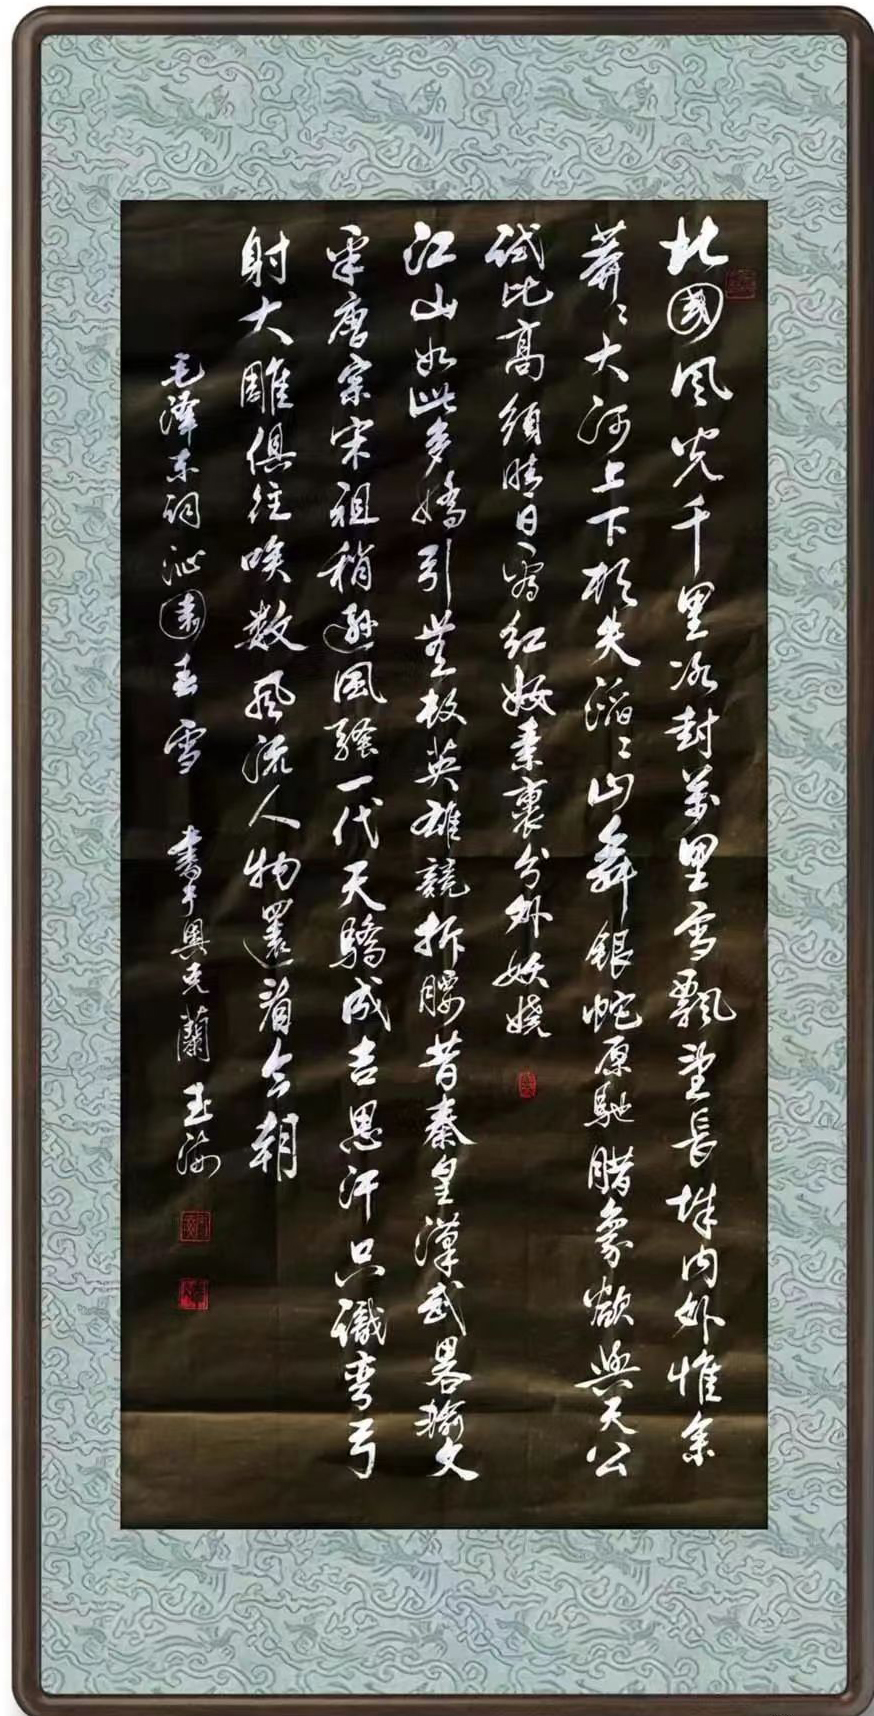 北國風光千里冰封萬里雪飄望長城内外惟余
莽々大河上下頓失滔々山舞銀蛇原馳腊象欲與天公
試比高須晴日看紅妝素裹分外妖嬈
江山如此多嬌引無數英雄競折腰昔秦皇漢武畧輸文
采唐宗宋祖稍遜風騷一代天驕成吉思汗只識彎弓
射大雕俱往矣數風流人物還看今朝
毛澤東詞沁園春雪 書于奥克蘭 玉海